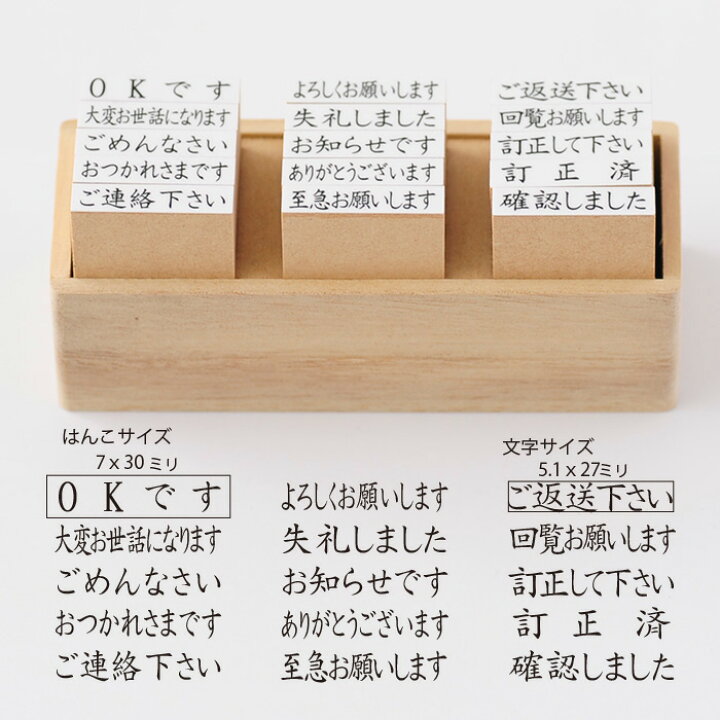 OKです
大変お世話になります
ごめんなさい
おつかれさまです
ご連絡下さい
よろしくお願いします
失礼しました
お知らせです
ありがとうございます
至急お願いします
ご返送下さい
回覧お願いします
訂正して下さい
訂正済
確認しました
はんこサイズ
7x30ミリ
OKです
大変お世話になります
ごめんなさい
おつかれさまです
ご連絡下さい
よろしくお願いします
失礼しました
お知らせです
ありがとうございます
至急お願いします
文字サイズ
5.1x27ミリ
ご返送下さい
回覧お願いします
訂正して下さい
訂正済
確認しました